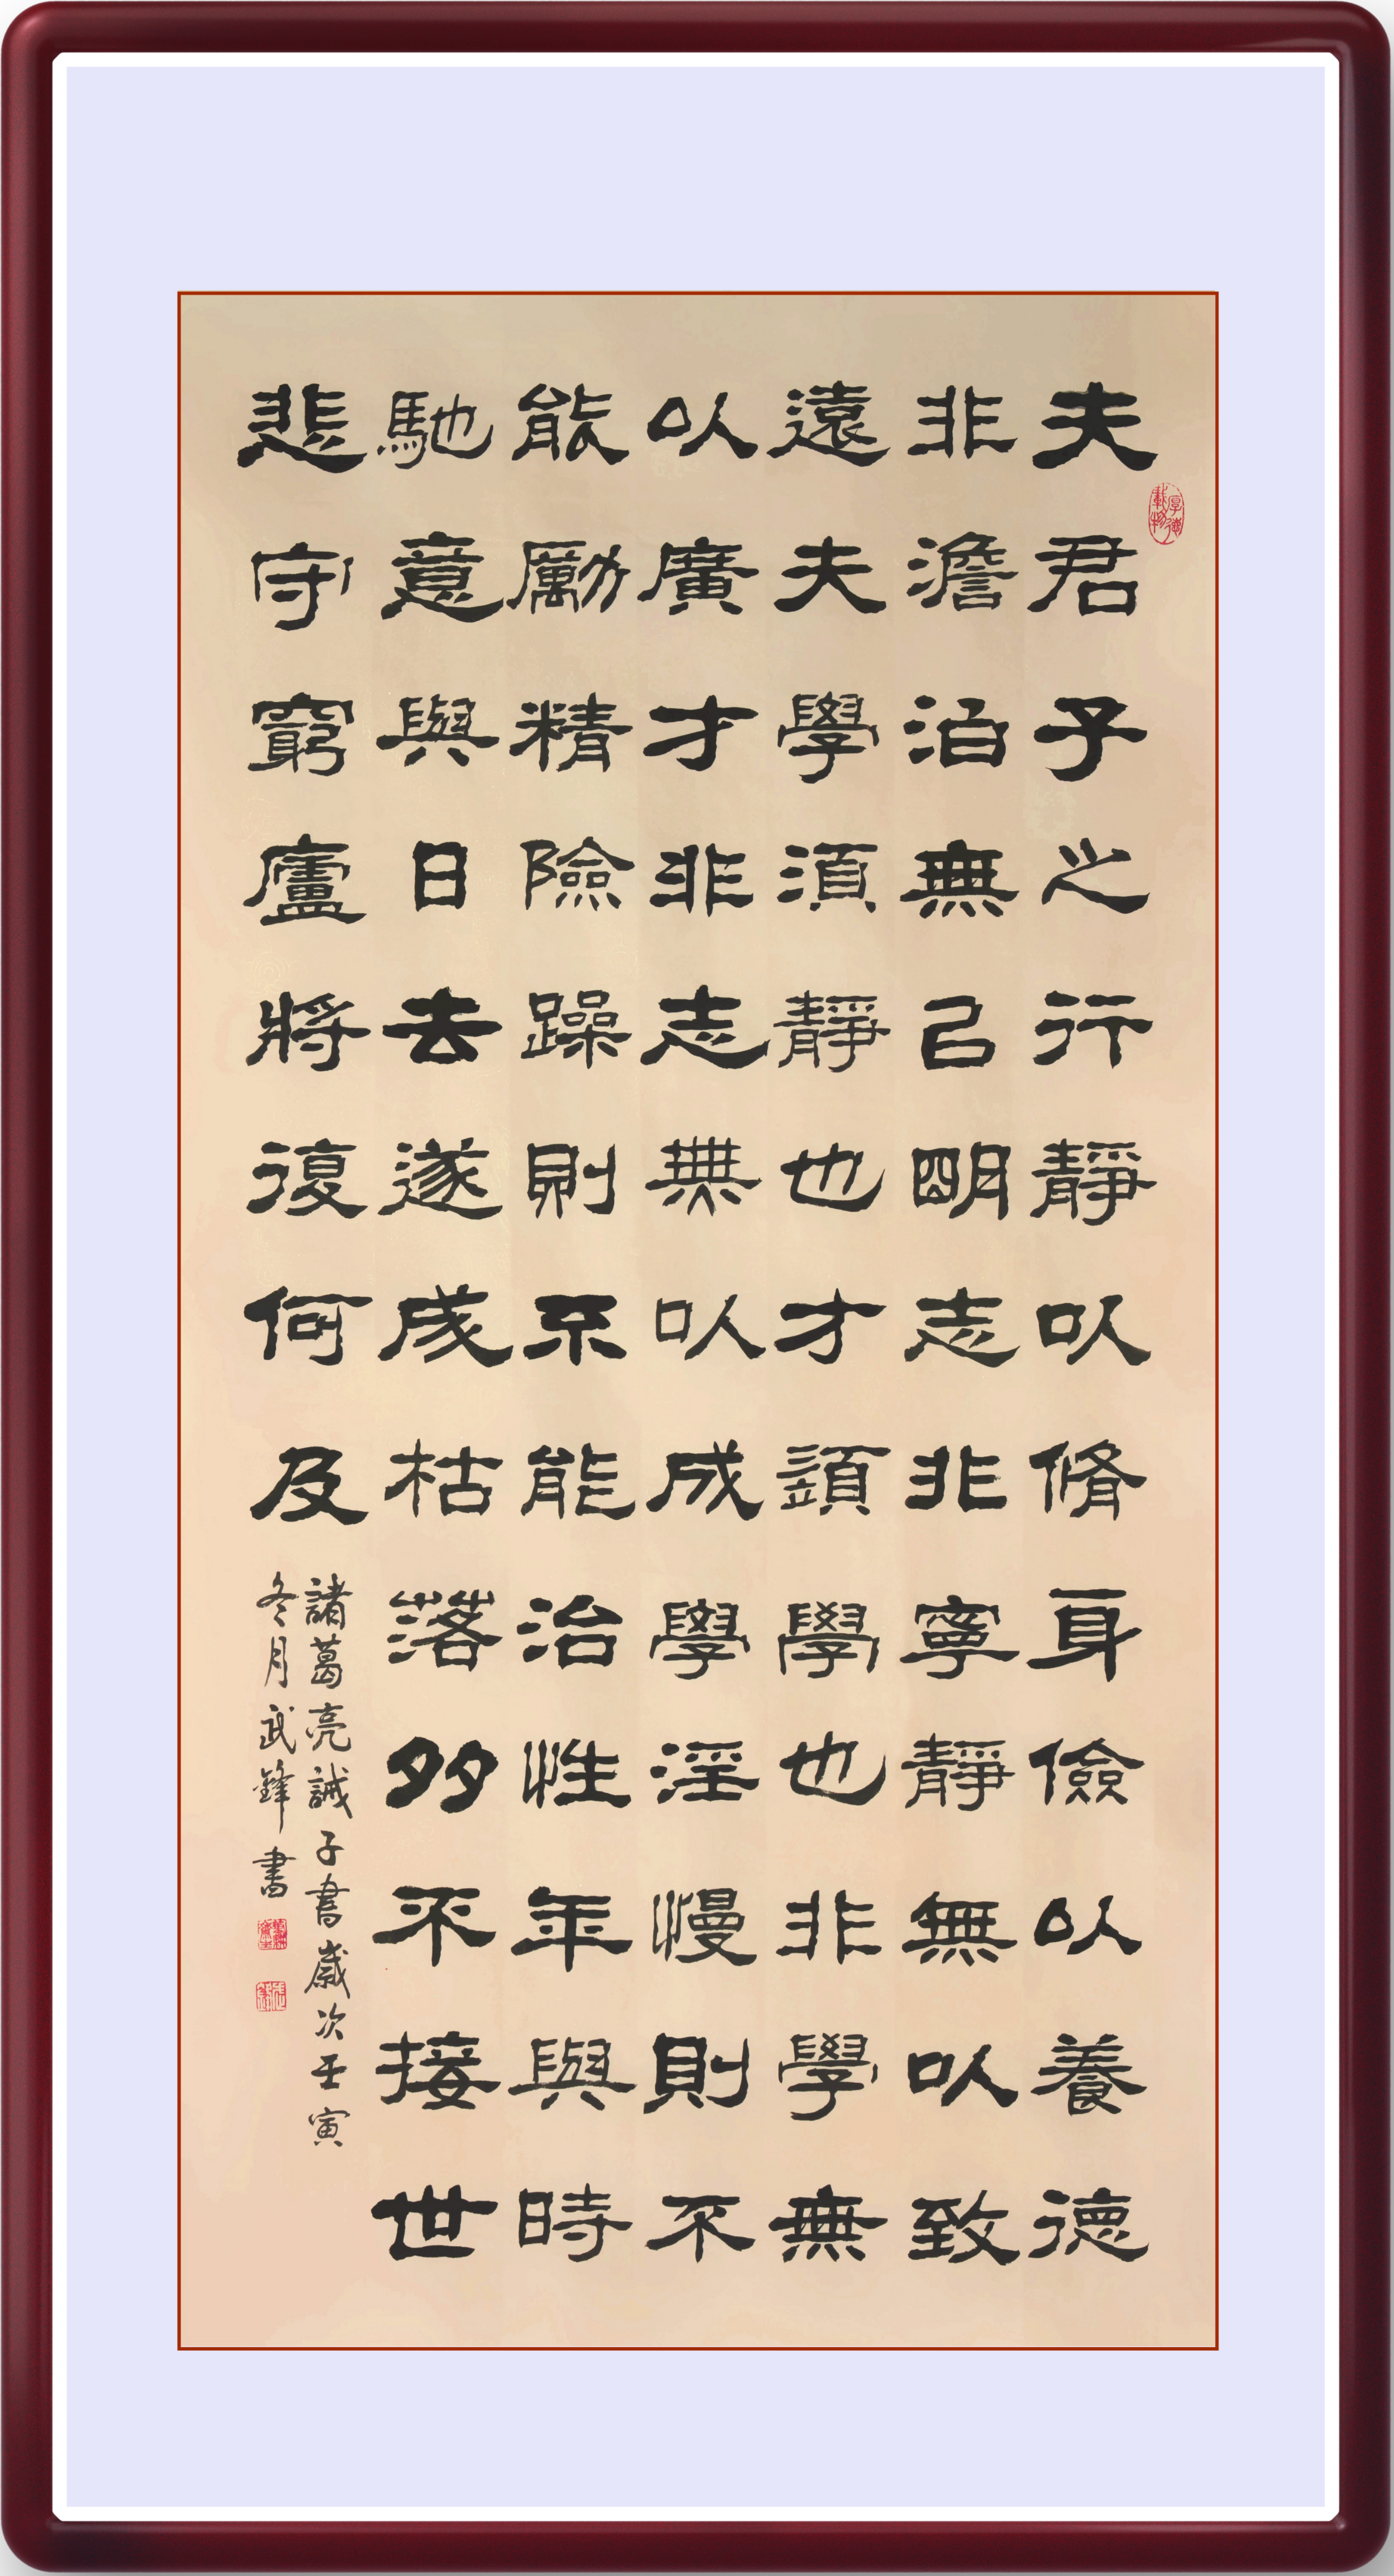 夫君子之行靜以脩身儉以養德
非澹泊無以明志非寧靜無以致
遠夫學須靜也才須學也非學無
以廣才非志無以成學淫慢則不
能勵精險躁則不能治性年與時
馳意與日去遂成枯落多不接世
悲守窮廬將復何及
諸葛亮誡子書歲次壬寅
冬月武鋒書
厚德載物